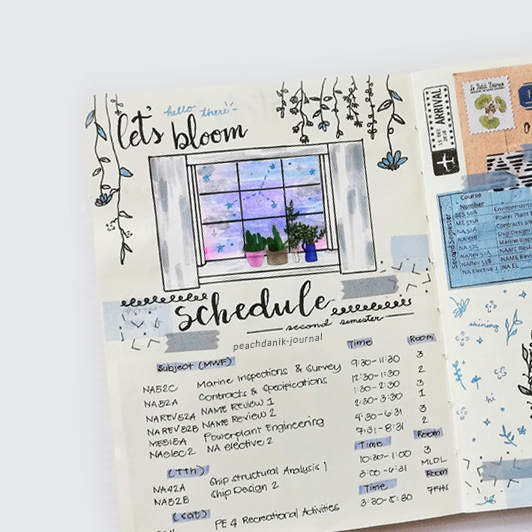 hello there!
let's bloom
schedule
second semester
peachdanik-journal
Subject (MWF) Time Room
NA52C Marine Inspections & Survey 9:30-11:30 3
NA52A Contracts & Specifications 12:30-1:30 2
NAREV52A NAME Review 1 1:30-2:30 3
NAREV52B NAME Review 2 2:30-3:30 1
ME515A Powerplant Engineering 4:30-6:31 3
NAelec 2 NA elective 2 7:31-8:31 2
(TTh) Time Room
NA42A Ship structural Analysis 1 10:30-1:00 3
NA52B Ship Design 2 3:00-6:31 MLDL
(Sat) Time Room
PE 4 Recreational Activities 3:30-5:30
ARRIVAL
Le Petit Prince
Course
Number
Second Semester
shining